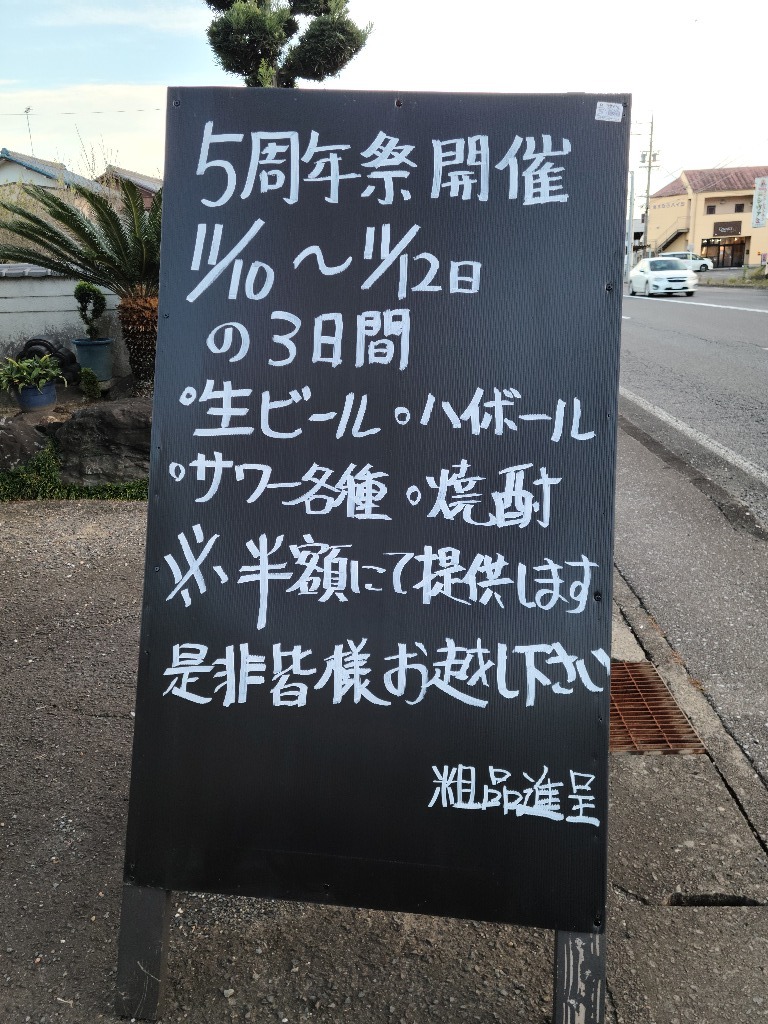 5周年祭開催
11/10～11/12日
の3日間
°生ビール°ハイボール
°サワー各種°焼酎
※半額にて提供します
是非皆様お越し下さい
粗品進呈